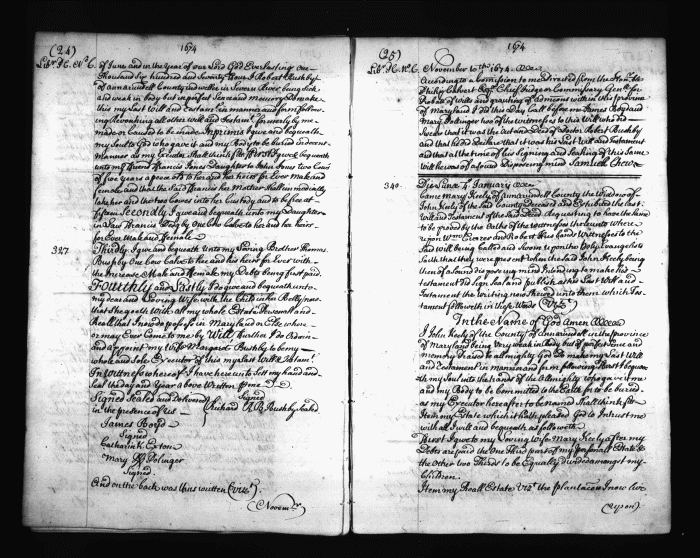 (24) 1674
Lib. H. No. C. of June and in the Year of our Lord God Everlasting one
Thousand Six hundred and Seventy I Robert Bushby
of annarundell County in the in Severn River being sick
and weak in body but in perfect Sence and Memory Do make
this my last Will and Testam in manner and form follow-
ing Revoaking all other Will and Testamt formerly by me
made or Caused to be made Imprimis I give and bequeath
my Soul to God who gave it and my Body to be buried in decent
Manner as my Executor Shall think fitt first I give & bequeath
unto my Francis in Daughter to John Jones two Cows
of five years a piece to her and her heirs for Ever male and
female and that the Said Francis her Mother Shall imediatly
take her and the two Cowes into her Custody and to be free at
fifteen Secondly I give and bequeath unto my Daughter
in Law Francis Day by One Cow Calve to her and her heirs
for Ever Male and female
327 Thirdly I give and bequeath unto my Loving Brother Thomas
Bushby One Cow Calve to him and his heirs for Ever with
the Increase Male and Female my Debts being first paid
Fourthly and Lastly I do give and bequeath unto
my dear and Loving Wife with the Child in her Belly
that She goeth With all my whole Estate Personall and
Reall that I now do possess in Maryland or Else where
or may Ever Come to me by Will further I do Ordain
and appoint my Wife Margaret Bushby to be my
whole and Sole Executor of this my last Will & Testamt
In Wittness whereof I have hereunto Sett my hand and
Seal the day and Year above Written
Signed Sealed and Delivered Signed
in the presence of us Richard R B Bushby Seald
James Boyd
Signed
Catharine Exton
Mary Dolinger
Signed
And on the back was thus written (Vizt)
(Novembr
(25) 1674
Lib. H. No. C. November 10th 1674
According to a Comission to me directed from the Honble
Philip Calvert Esqr Chief Judge or Commissary Genll for
Probate of wills and granting of Admcons within this province
of Maryland I did this day Call before me James Boyd and
Mary Dolinger two of the witnesses to this Will who did
Swear that it was the act and Deed of Doctor Robert Bushby
and that he did Declare that it was his last Will and Testament
and that at the time of his Signing and Sealing of the Same
Will he was of a Sound Disposeing mind Samuel Chew
340 Die Lunæ 4 January
Came Mary Keely of annarundell County the Widdow of
John Keely of the Said County Deceased and Exhibited the last
Will and Testament of the Said Deced. Requesting to have the same
to be proved by the Oaths of the Witnesses thereunto where
upon Wm and Robert wittnesses to the
Said Will being Called and Sworn upon the Holy Evangelists
Saith that they were present when the Said John Keely being
then of a Sound disposeing mind Intending to make his
testament did sign Seal and publish as his Last Will and
Testament the Writing now Shewed unto them which Tes-
tament followeth in these Words (Vizt)
In the Name of God Amen
I John Keely of the County of annarundell in the province
of Maryland being very weak in body but of perfect Sence and
memory Praised be allmighty God do make my Said Will
and Testament in Manner and form following First I bequea-
th my Soul into the hands of the Almighty who gave it me
and my Body to be Committed to the Earth for to be buried
as my Executor hereafter to be named Shall think fitt
Item my Estate which it hath pleased God to Intrust me
with all I will and bequeath as followeth
First I give to my Loving Wife Mary Keely after my
Debts are paid the One Third part of my personall Estate &
the Other two Thirds to be Equally divided amongst my
Children
Item my Reall Estate Vizt the plantacon I now live
(upon)